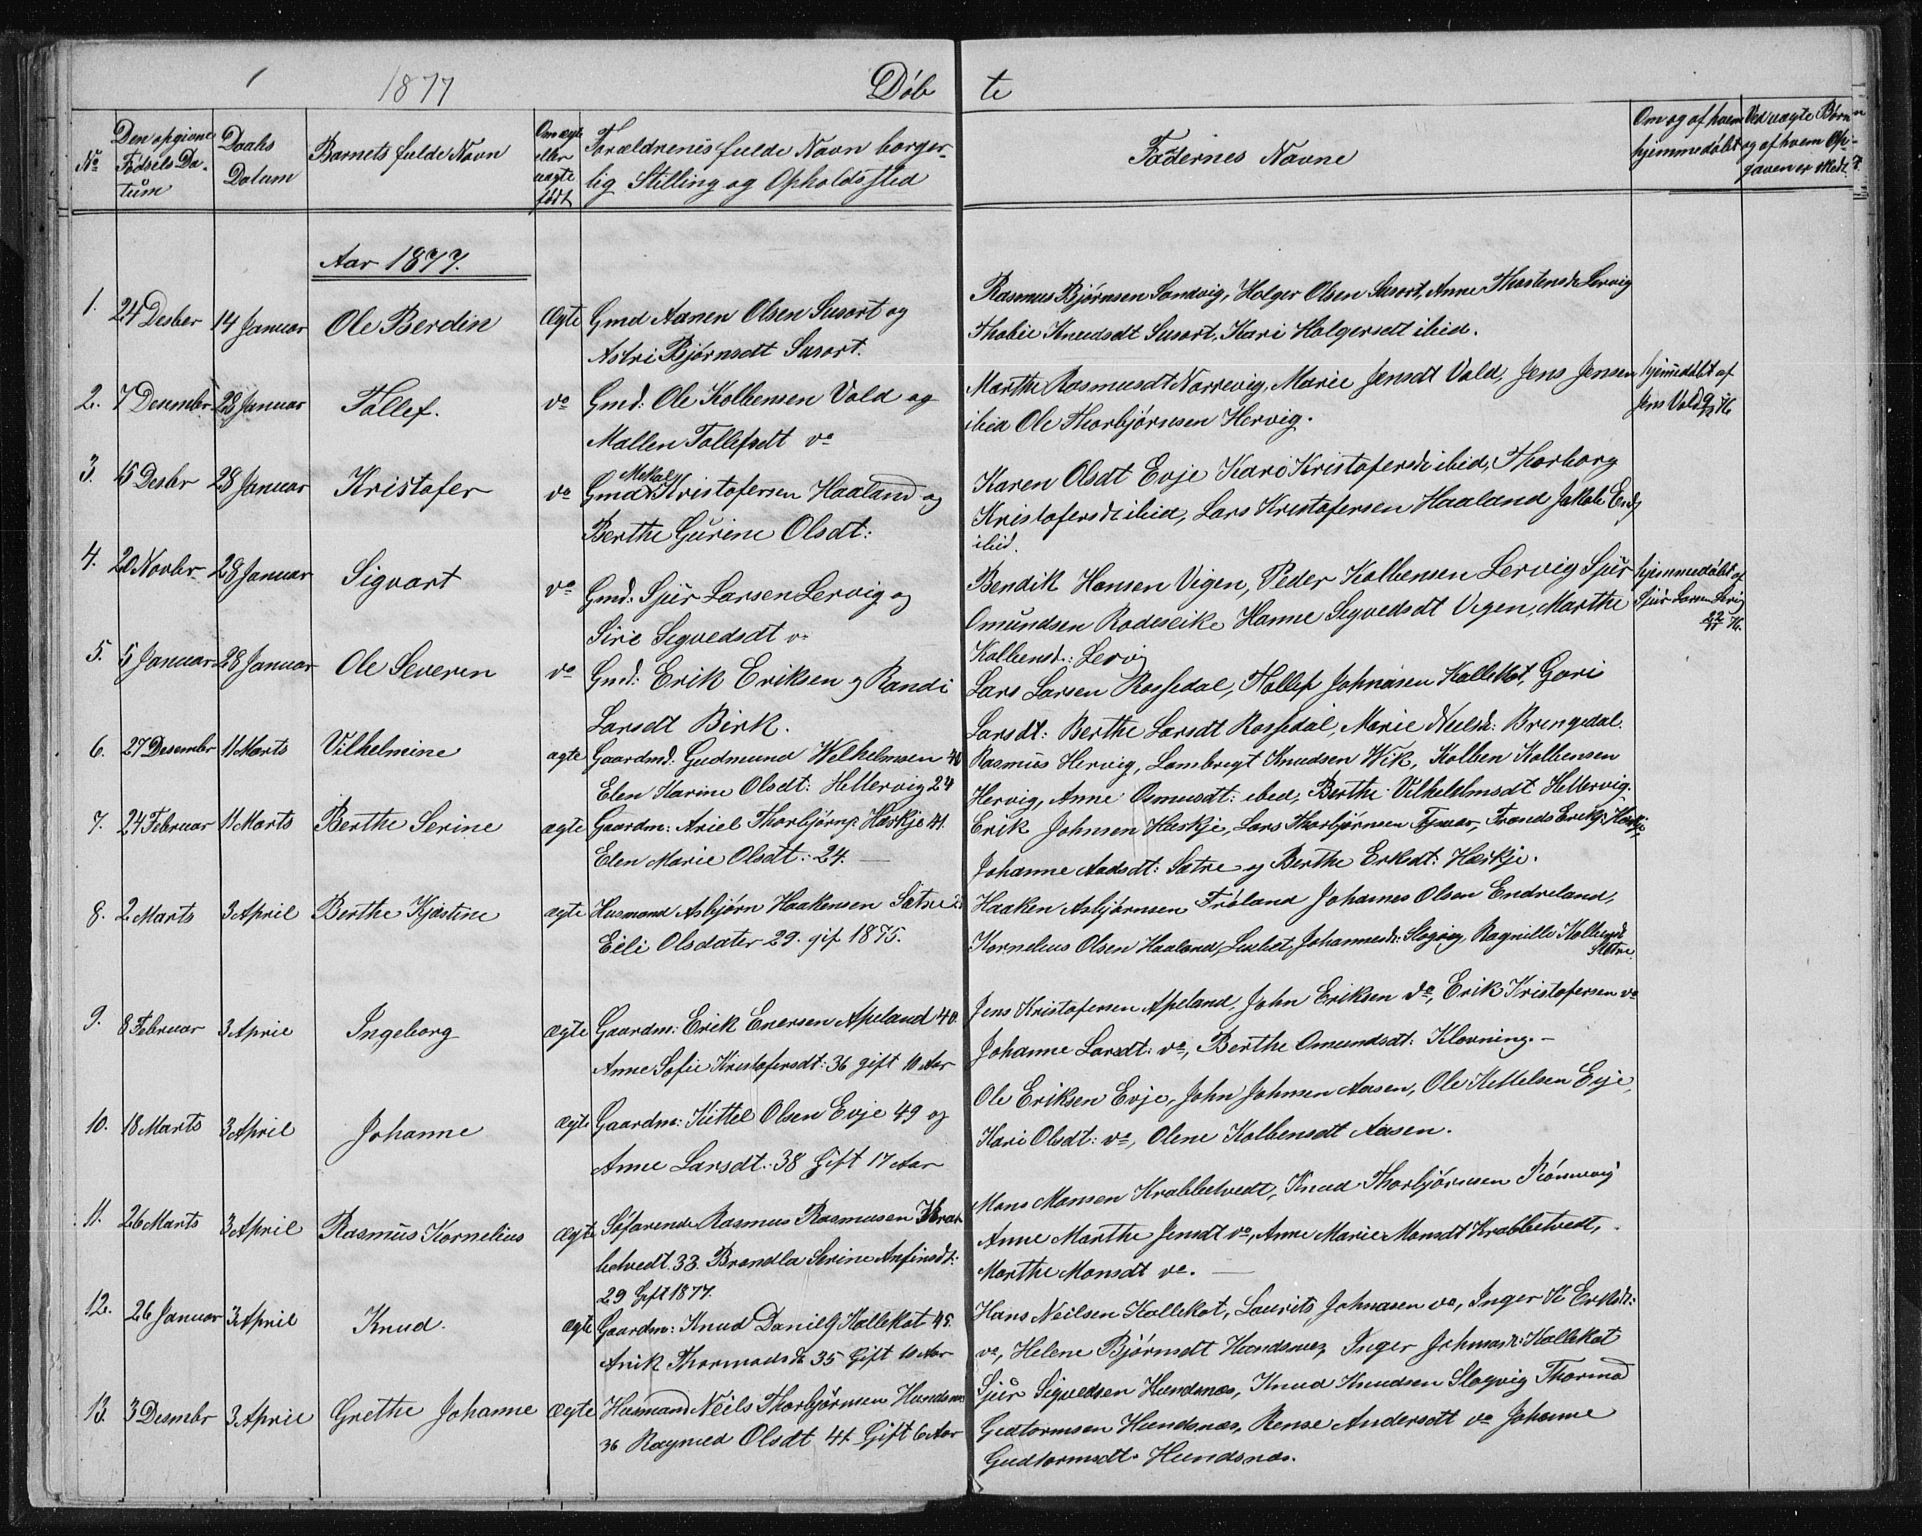 1877 Døbte
No
Den opgivne Fødsels Datum
Daabs Datum
Barnets fulde Navn
Om ægte eller uægte født
Forældrenes fulde Navn borgerlig Stilling og Opholdssted
Faddernes Navne
Om og af hvem hjemmedøbt
Ved uægte Børn og af hvem Opgaven er skedt
Aar 1877.
1. 24 Desber 14 Januar Ole Berdin Ægte Gmd Aanen Olsen Susort og
Astri Bjørnsdt Susort.
Rasmus Bjørnsen Sandvig, Holger Olsen Susort, Anne Thostensdt Lervig
Thobie Knudsdt Susort, Kari Holgersdt ibid.
2. 7 Desembr 28 Januar Tollef. do Gmd: Ole Kolbensen Vold og
Mallen Tollefsdt do
Marthe Rasmusdt Narrevig, Marie Jensdt Vold, Jens Jensen
ibid Ole Thorbjørnsen Hervig.
hjemmedøbt af
Jens Vold
3. 15 Desbr 28 Januar Kristofer do Gmd Mekal Kristofersen Haaland og
Berthe Gurine Olsdt:
Karen Olsdt Evje Kari Kristofersdt ibid, Thorborg
Kristofersdt ibid, Lars Kristofersen Haaland Jakob
ibid.
4. 20 Novbr 28 Januar Sigvart do Gmd: Sjur Larsen Lervig og
Sire Sigvedsdt do
Bendik Hansen Vigen, Peder Kolbensen Lervig Sjur
Omundsen Rodeseike Hanne Sigvedsdt Vigen, Marthe
Kolbensd: Lervig
hjemmedøbt af
Sjur Larsen Lervig
22/11 76.
5. 5 Januar 28 Januar Ole Severen do Gmd: Erik Eriksen og Randi
Larsdt Birk.
Lars Larsen Rossedal, Hollef Johnasen Kallekot, Gari
Larsdt: Berthe Larsdt Rossedal, Marie Neelsd: Brengedal.
6. 27 Desembr 11 Marts Vilhelmine ægte Gaardmd. Gudmund Welhelmsen
Elen Karine Olsdt: Hettervig 24
Rasmus Hervig, Lambregt Knudsen Wik, Kolben Kolbensen
Hervig, Anne Osmusdt: ibed, Berthe Vilhelmsdt Hettervig.
7. 24 Februar 11 Marts Berthe Serine ægte Gaardm: Ariel Thorbjørns. Haskje 41.
Elen Marie Olsdt: 24.
Erik Johnsen Haskje, Lars Thorbjørnsen Frands Eriks. Haskje
Johanne Aadsdt: Satre og Berthe Eriksdt: Haskje.
8. 2 Marts 3 April Berthe Kjæstine ægte Husmand Asbjørn Haakensen Sætre
Eili Olsdater 29. gif 1875.
Haaken Asbjørnsen Frøland Johannes Olsen Endreland,
Kornelius Olsen Haaland, Lisbet Johannesdt: Slogvig, Ragnille Kolbensdt
Sætre.
9. 8 Februar 3 April Ingeborg ægte Gaardm: Erik Enersen Apeland 40.
Anne Sofie Kristofersdt: 36 gift 10 Aar
Jens Kristofersen Apeland, John Eriksen do, Erik Kristofersen do
Johanne Larsdt: do, Berthe Omundsdt: Klovning.
10. 18 Marts 3 April Johanne Ægte Gaardm: Kittel Olsen Evje 49 og
Anne Larsdt: 38 Gift 17 Aar
Ole Eriksen Evje, John Johnsen Aasen, Ole Kittelsen Evje,
Kari Olsdt: do, Olene Kolbensdt Aasen.
11. 26 Marts 3 April Rasmus Kornelius Ægte Søfarende Rasmus Rasmusen Krab-
betvedt. 33. Brandla Serine Anfinsdt:
29 Gift 1877.
Mons Monsen Krabbetvedt, Knud Thorbjørnsen Rønnevig
Anne Marthe Jensdt do, Anne Marie Monsdt Krabbetvedt,
Marthe Monsdt do.
12. 26 Januar 3 April Knud. ægte Gaardm: Knud Daniels. Kallekot 45.
Anik Thormodsdt 35 Gift 10 Aar
Hans Neilsen Kallekot, Laurits Johnasen do, Inger K Eriksdt:
do, Helene Bjørnsdt Hundsnes, Inger Johnasdt: Kallekot
13. 3 Desmbr 3 April Grethe Johanne Ægte Husmand Neils Thorbjørnsen Hundsnæs
36 Ragned Olsdt 41 Gift 6 Aar
Sjur Sigvedsen Hundsnæs, Knud Knudsen Slogvig Thormod
Gudtormsen Hundsnæs, Rense Andersdt do Johanne
Gudtormsdt. Hundsnæs.